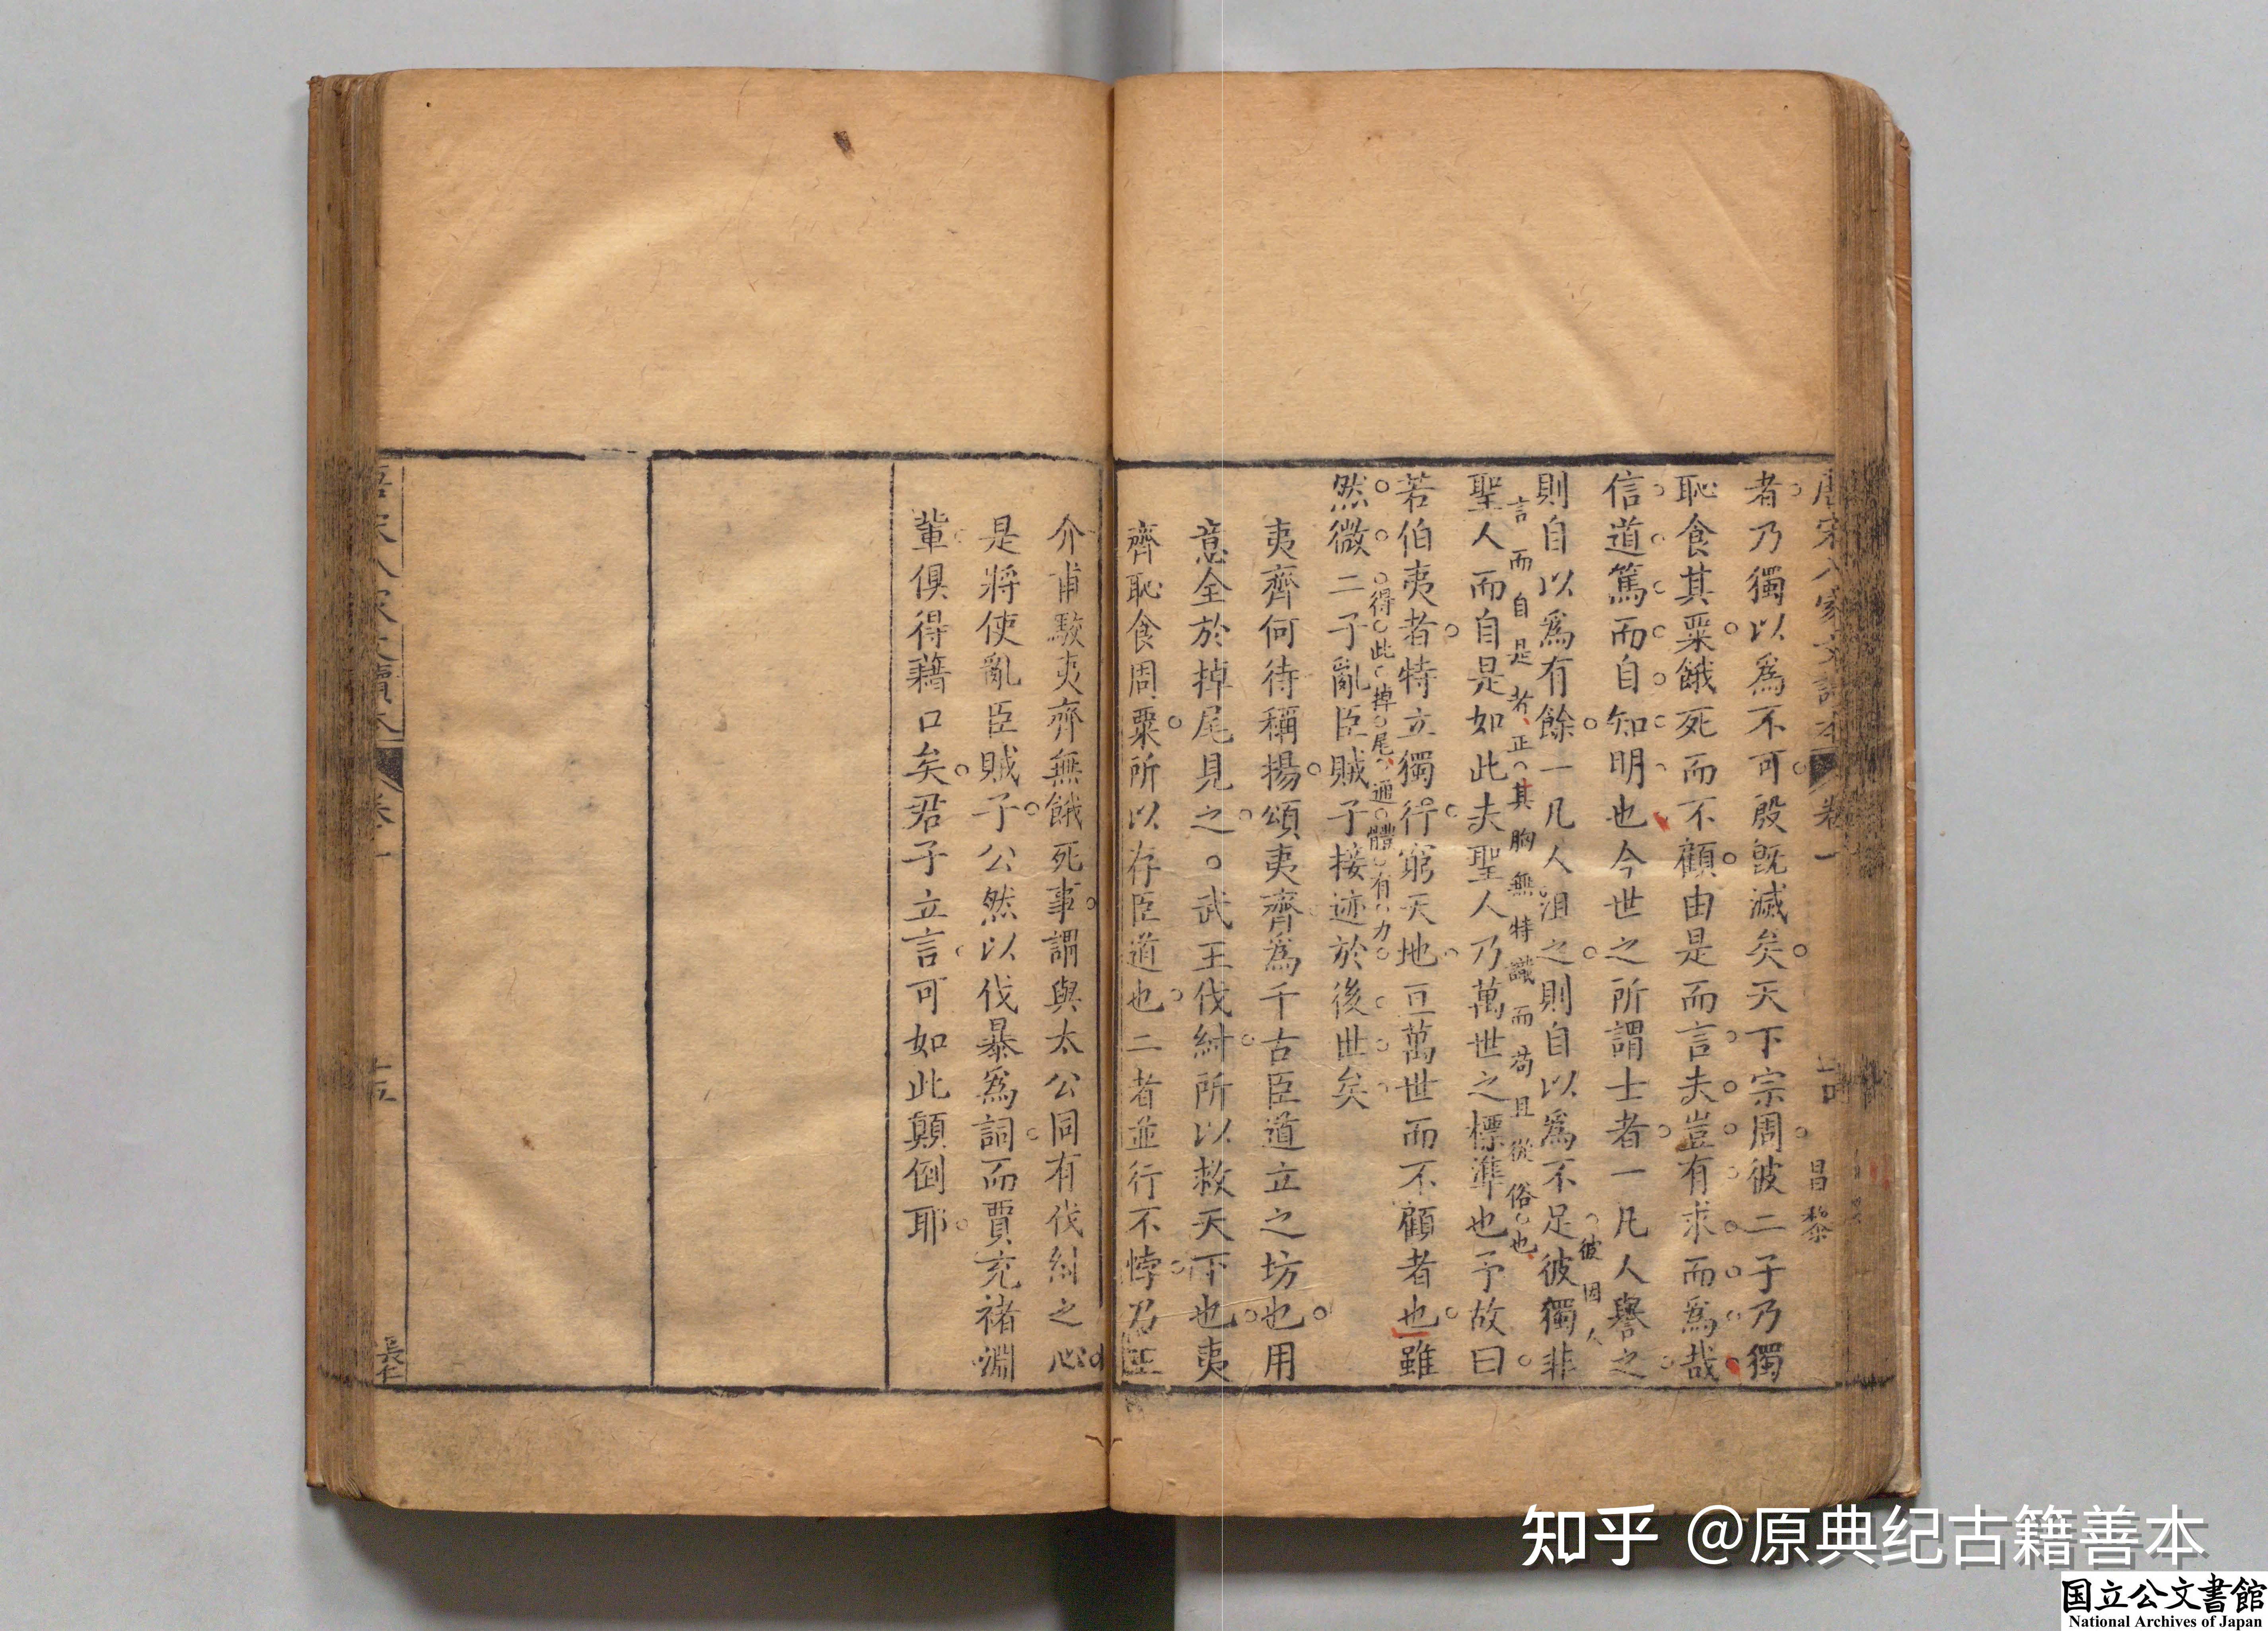 唐宋八家文讀本 卷一 昌黎
者乃獨以爲不可殷旣滅矣天下宗周彼二子乃獨
恥食其粟餓死而不顧由是而言夫豈有求而爲哉
信道篤而自知明也今世之所謂士者一凡人譽之
則自以爲有餘一凡人沮之則自以爲不足彼獨非
彼因人
聖人而自是如此夫聖人乃萬世之標準也予故曰
言而自是者正其胸無特識而苟且從俗也
若伯夷者特立獨行窮天地亘萬世而不顧者也雖
然微二子亂臣賊子接迹於後世矣
得此掉尾通體有力
夷齊何待稱揚頌夷齊爲千古臣道立之坊也用
意全於掉尾見之。武王伐紂所以救天下也夷
齊恥食周粟所以存臣道也二者並行不悖乃王
介甫駮夷齊無餓死事謂與太公同有伐紂之心
是將使亂臣賊子公然以伐暴爲詞而賈充褚淵
輩俱得藉口矣君子立言可如此顛倒耶
唐宋八家文讀本 卷一 十五
長仁
知乎 @原典纪古籍善本
国立公文書館
National Archives of Japan